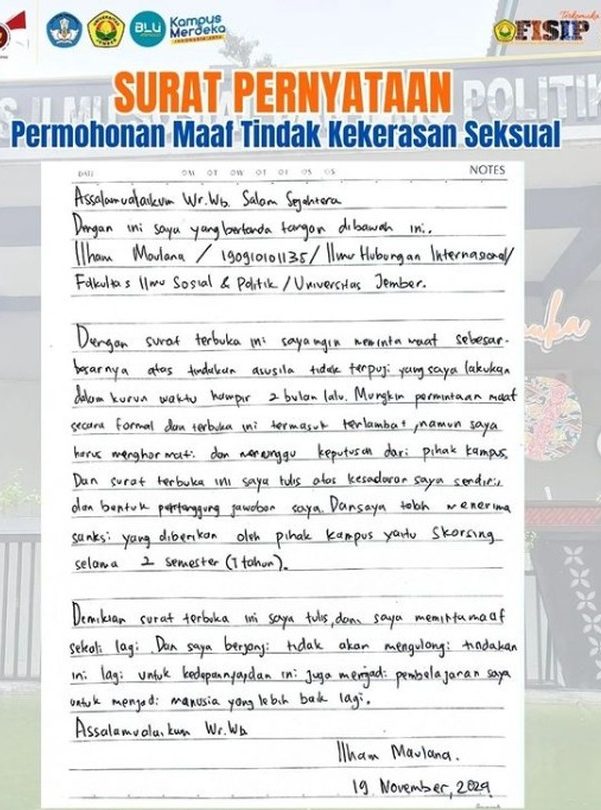 UNIVERSITAS JEMBER
BLU
Kampus
Merdeka
INDONESIA JAYA
Terkemuka
FISIP
SURAT PERNYATAAN
Permohonan Maaf Tindak Kekerasan Seksual
S ILMU SOS POLITIK
DATE
NOTES
Assalamualaikum Wr. Wb. Salam Sejahtera
Dengan ini saya yang bertanda tangan dibawah ini.
Ilham Maulana / 190910101135 / Ilmu Hubungan Internasional /
Fakultas Ilmu Sosial & Politik / Universitas Jember.
Dengan surat terbuka ini saya ingin meminta maaf sebesar-
besarnya atas tindakan asusila tidak terpuji yang saya lakukan
dalam kurun waktu hampir 2 bulan lalu. Mungkin permintaan maaf
secara formal dan terbuka ini termasuk terlambat, namun saya
harus menghormati dan menunggu keputusan dari pihak kampus.
Dan surat terbuka ini saya tulis atas kesadaran saya sendiri,
dan bentuk pertanggung jawaban saya. Dan saya telah menerima
sanksi yang diberikan oleh pihak kampus yaitu Skorsing
selama 2 semester (1 tahun).
Demikian surat terbuka ini saya tulis, dan saya meminta maaf
sekali lagi. Dan saya berjanji tidak akan mengulangi tindakan
ini lagi untuk kedepannya, dan ini juga menjadi pembelajaran saya
untuk menjadi manusia yang lebih baik lagi.
Assalamualaikum Wr. Wb
Ilham Maulana.
19 November, 2024